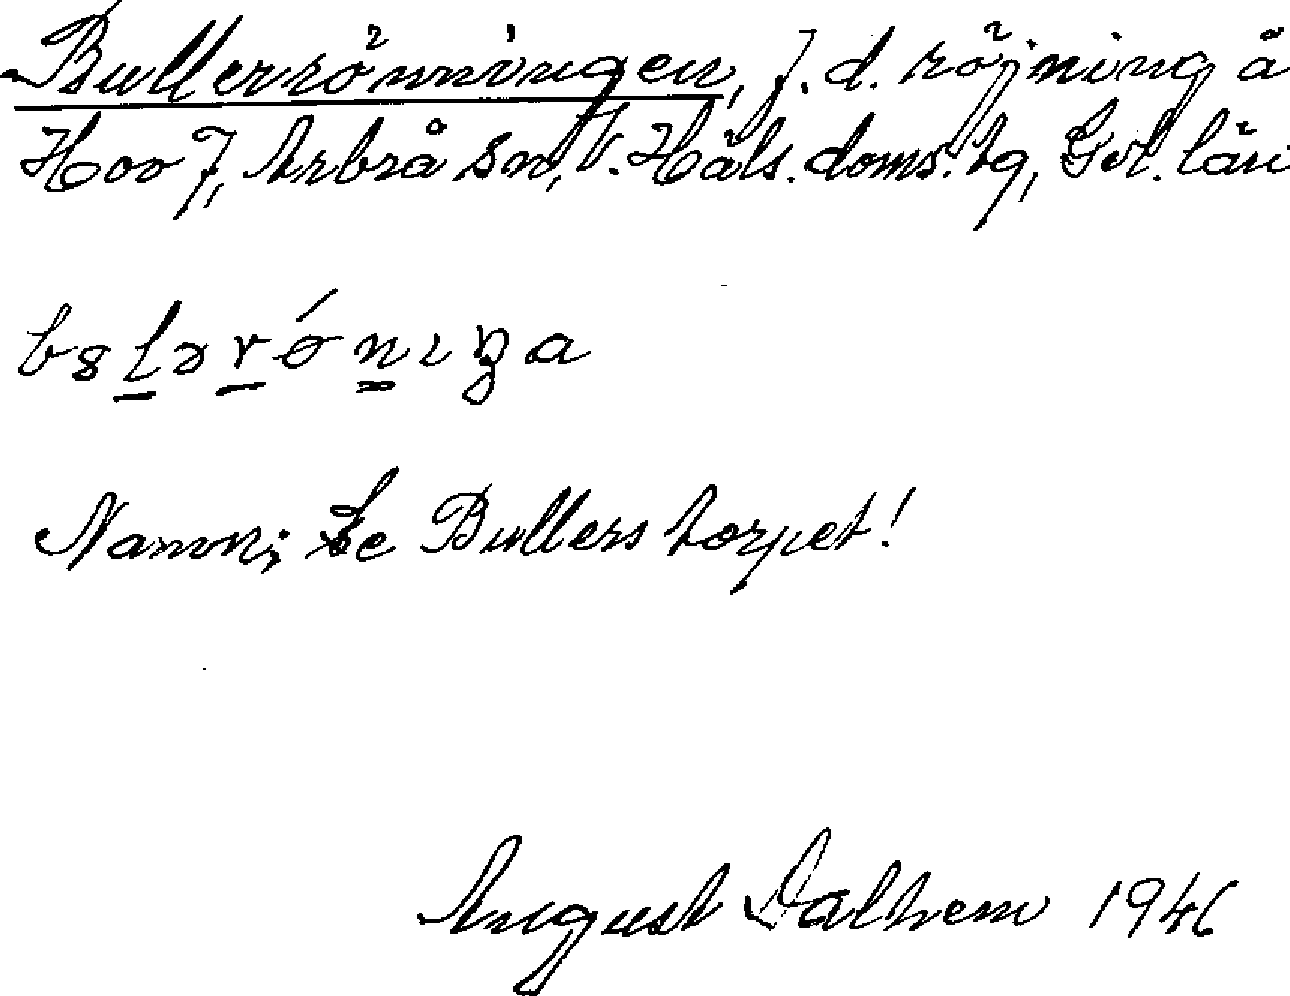 Bullerrönningen, f. d. röjning å
Hov 7, Arbrå sn, V. Häls. doms. tg, Gvl. län
Namn; Se Bullers torpet!
August Dalhem 1946